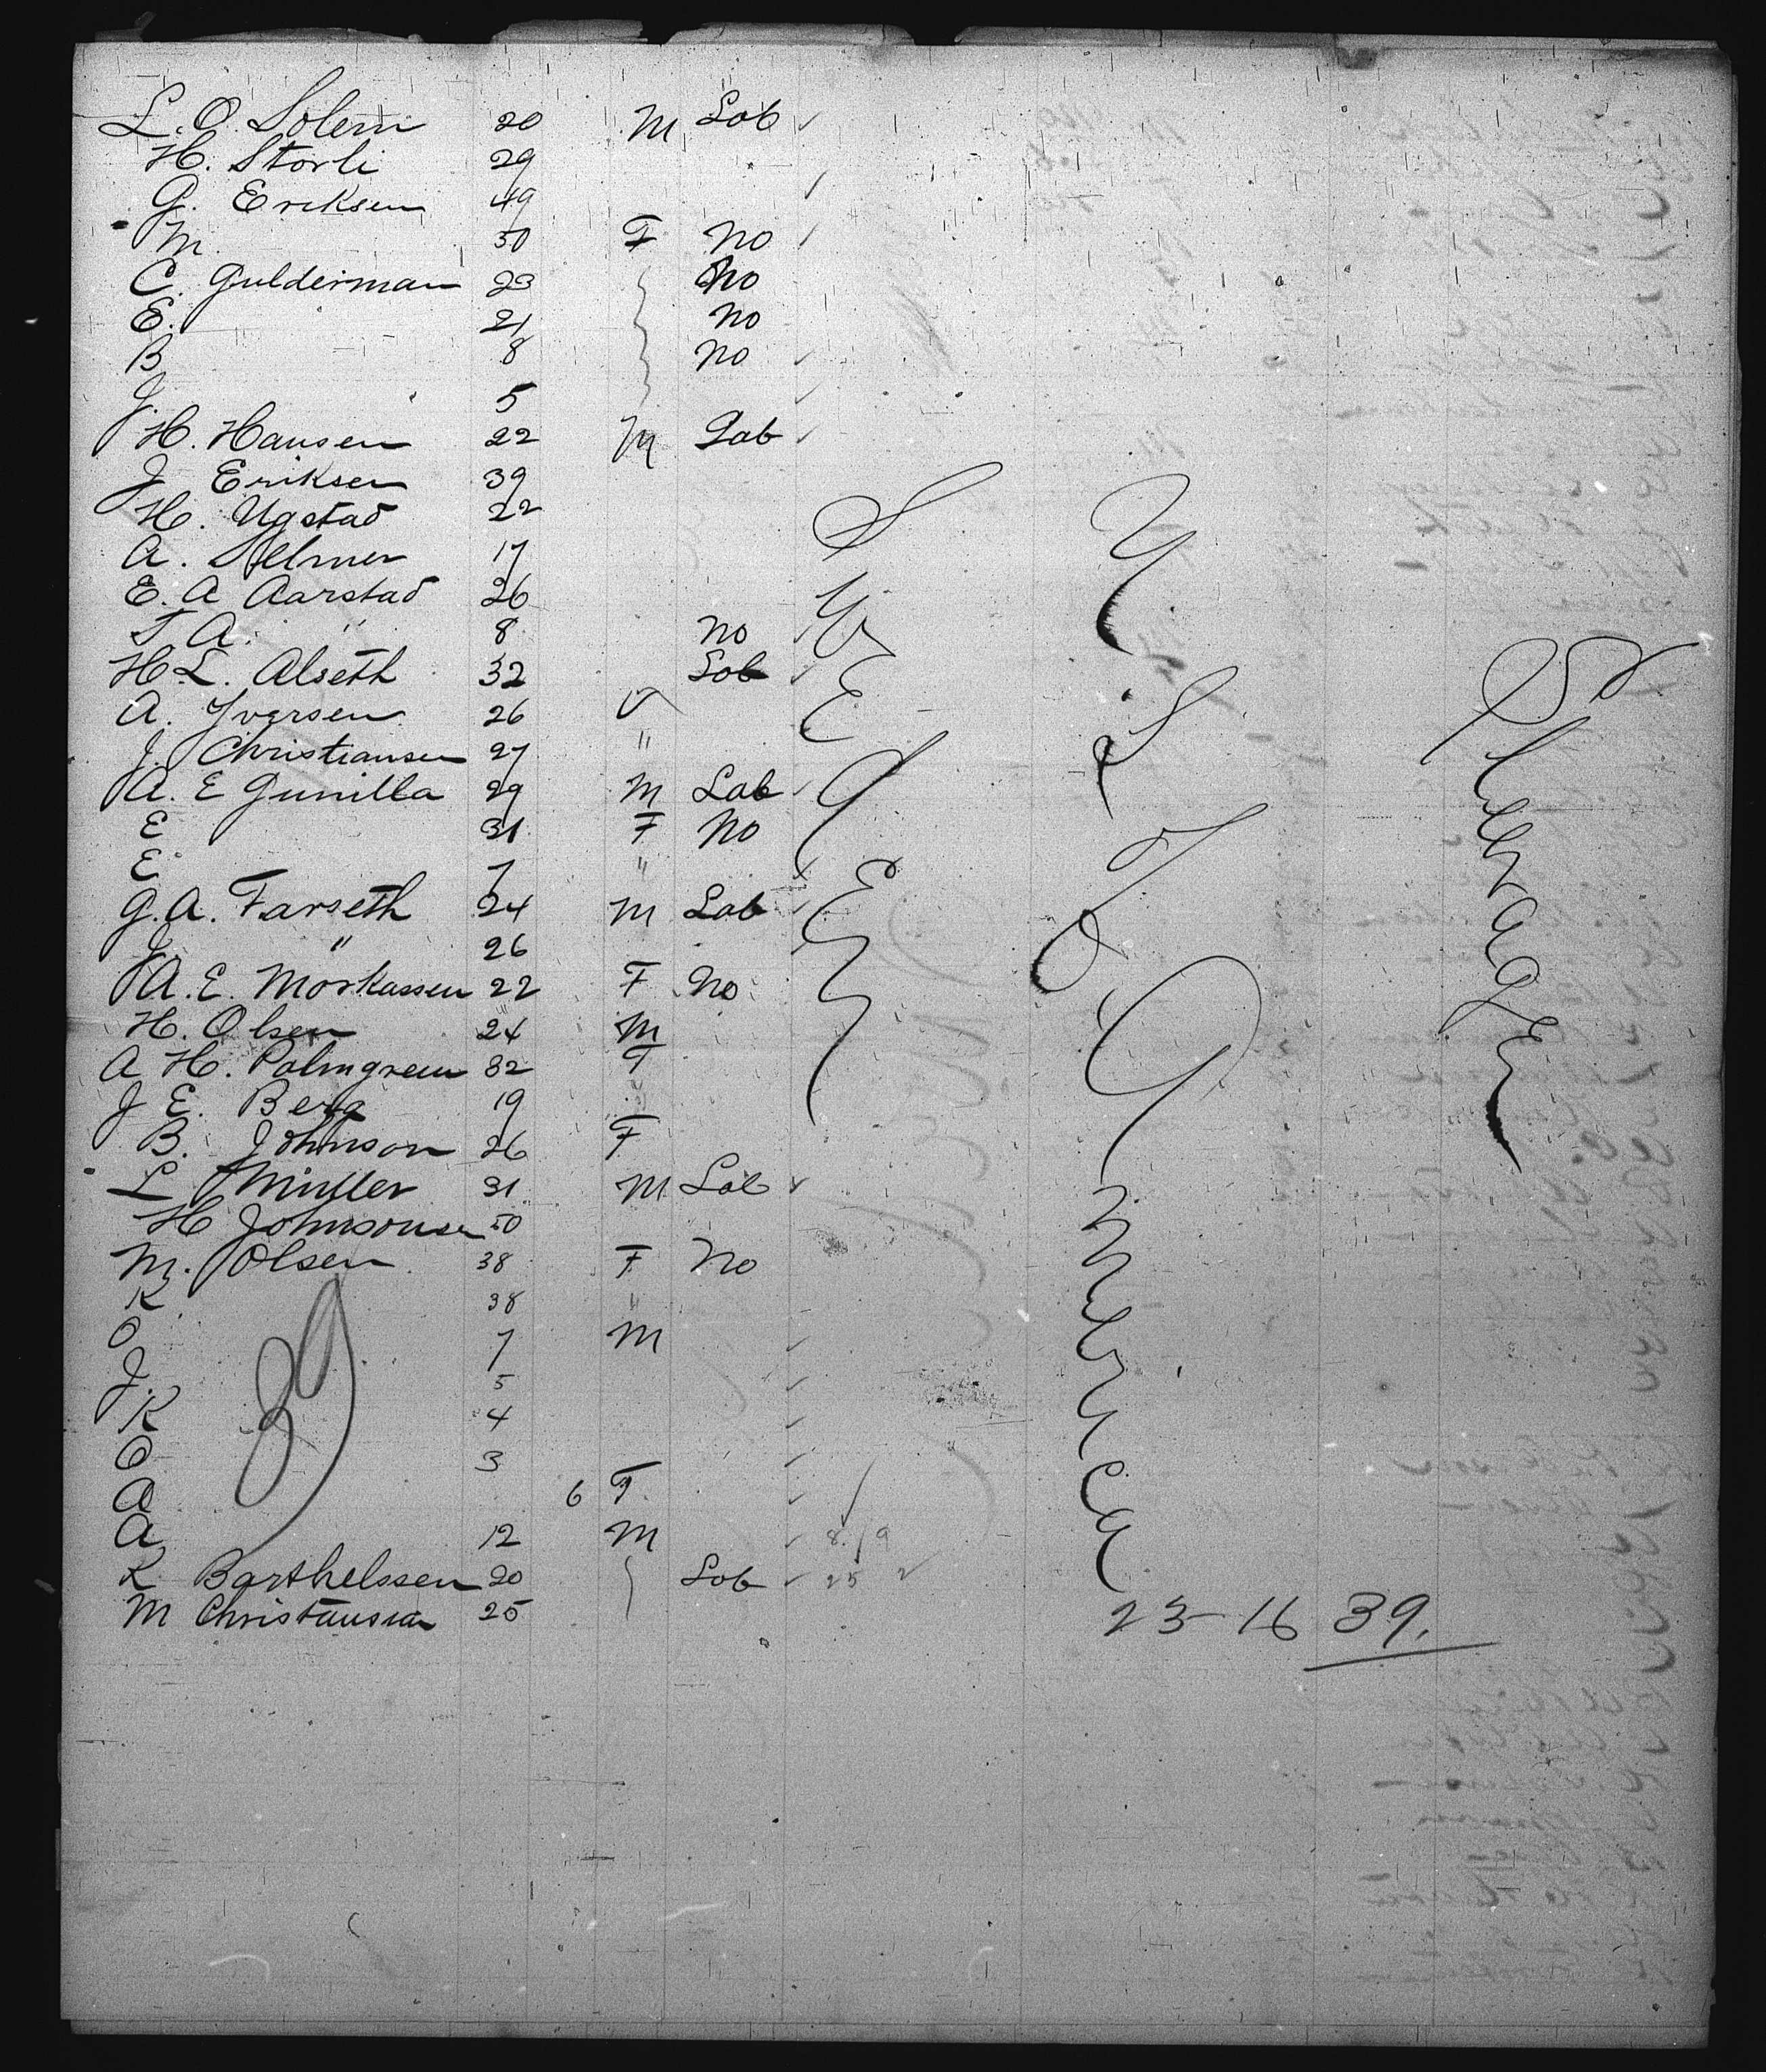 L. O. Solem 20 M Lab ✓
H. Storli 29
G. Eriksen 49 ✓
M. 50 F No ✓
C. Gulderman 23 No
E. 21 No
B 8 No ✓
J. 5 ✓
H. Hansen 22 M Lab ✓
J Eriksen 39
H. Ugstad 22
A. Selmer 17
E. A Aarstad 26
T. A. " 8 No ✓
H. L. Alseth 32 Lab ✓
A. Iversen 26
J. Christiansen 27 "
A. E Gunilla 29 M Lab ✓
E 31 F No
E 7 "
G. A. Farseth 24 M Lab ✓
J. " 26
A. E. Morkassen 22 F No
H. Olsen 24 M
A H. Palmgreen 32 F
J E. Berg 19 "
B. Johnson 26 F
L Muller 31 M Lab ✓
H Johnsonsen 50
M. Olsen 38 F No
K 38 "
O 7 M ✓
J. 5 ✓
K 4 ✓
O 3 ✓
A 6 F ✓
A 12 M ✓ 8 / 9
K Barthelssen 20 Lab ✓ 25 2
M Christiansen 25
39
SWEDEN
U. S. of America
Steerage
23 - 16 39.